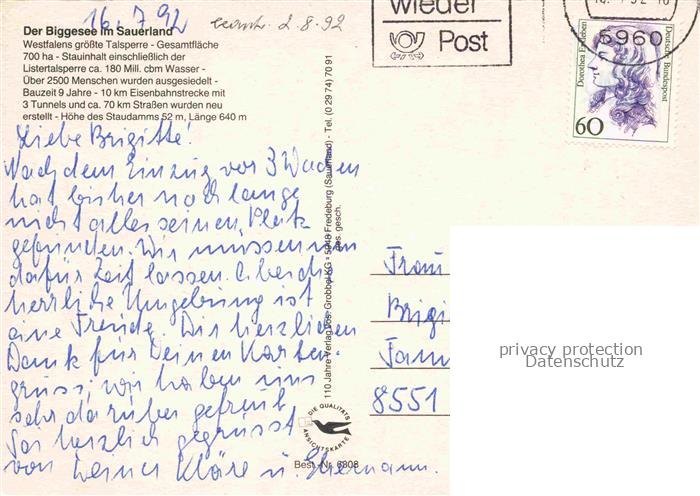 16.7.92
2.8.92
Der Biggesee im Sauerland
Westfalens größte Talsperre - Gesamtfläche
700 ha - Stauinhalt einschließlich der
Listertalsperre ca. 180 Mill. cbm Wasser -
Über 2500 Menschen wurden ausgesiedelt -
Bauzeit 9 Jahre - 10 km Eisenbahnstrecke mit
3 Tunnels und ca. 70 km Straßen wurden neu
erstellt - Höhe des Staudamms 52 m, Länge 640 m
Liebe Brigitte!
Nach dem Einzug vor 3 Wochen
hat bisher noch lange
nicht alles seinen Platz
gefunden. Wir müssen uns
dafür Zeit lassen. Aber die
herrliche Umgebung ist
eine Freude. Dir herzlichen
Dank für Deinen Karten-
gruss, wir haben uns
sehr darüber gefreut
Sei herzlich gegrüsst
von Deiner Kläre u. Hermann.
110 Jahre Verlag Jos. Grobbel KG · 5948 Fredeburg (Sauerland) - Tel. (0 29 74) 70 91
Ges. gesch.
DIE QUALITÄTS
ANSICHTSKARTE
Best.-Nr. 6808
wieder
Post
5960
Dorothea Erxleben
Deutsche Bundespost
60
Frau
Brigi
Fam
8551
privacy protection
Datenschutz